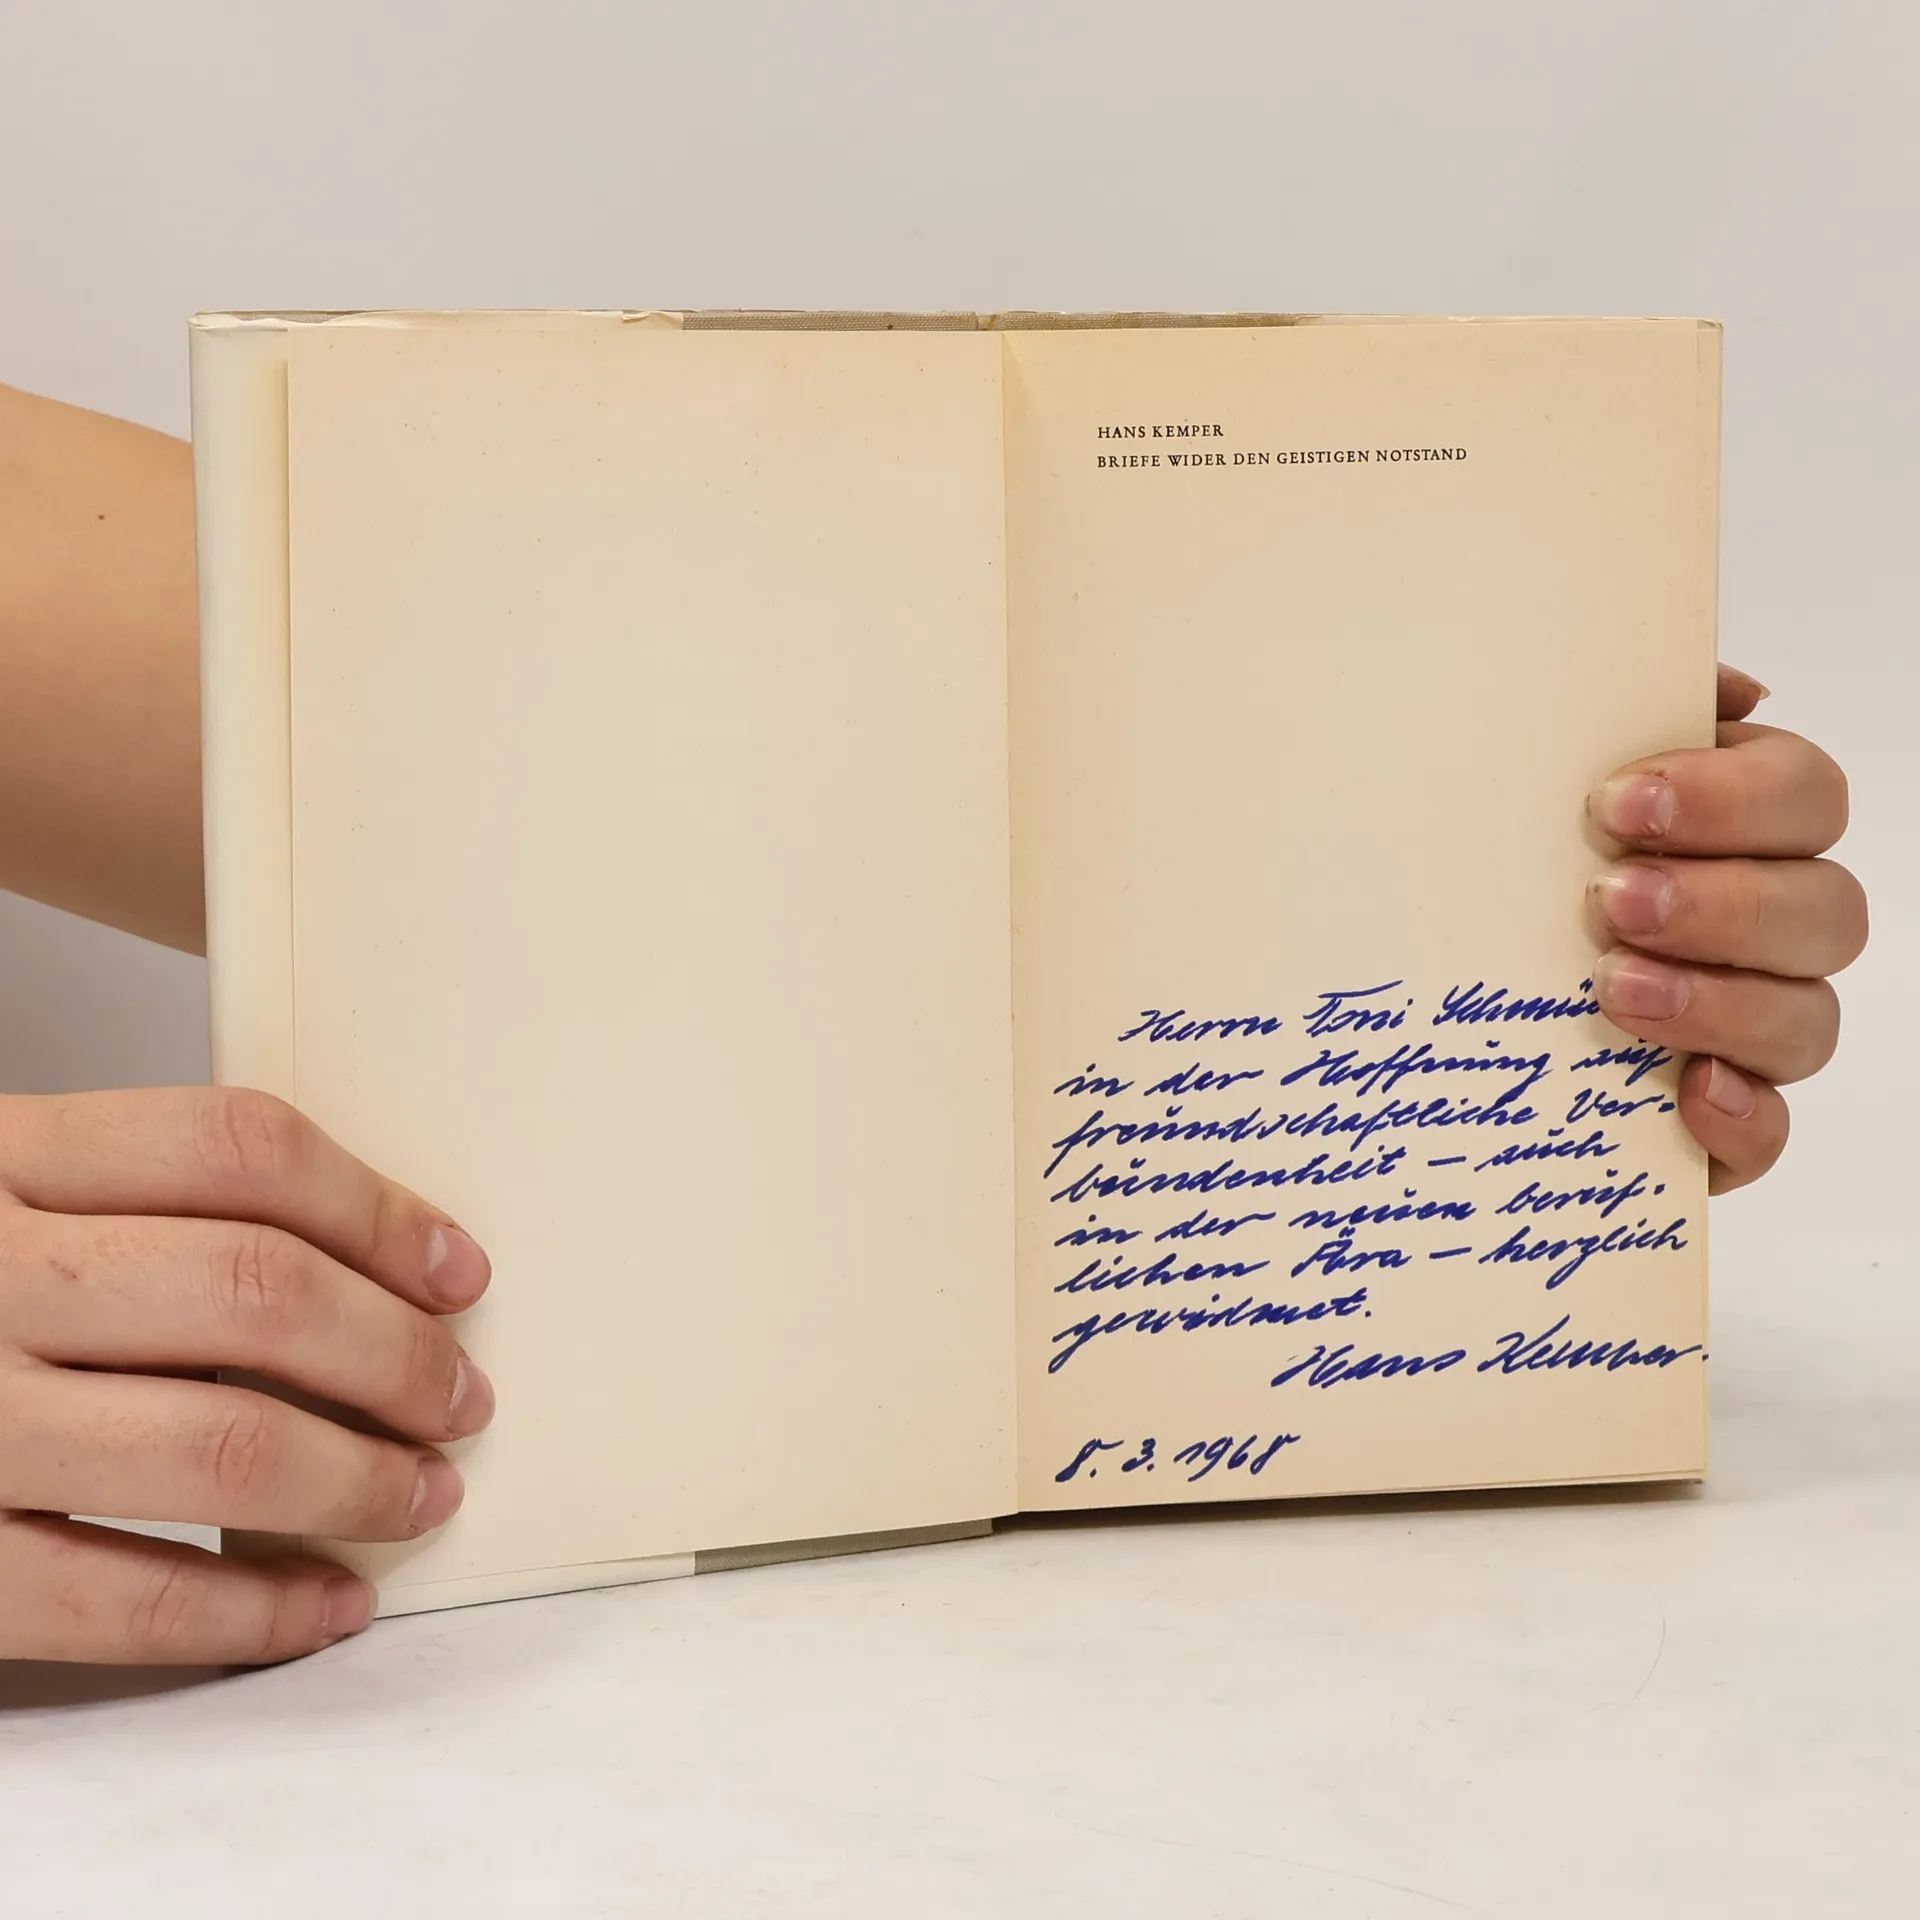 HANS KEMPER
BRIEFE WIDER DEN GEISTIGEN NOTSTAND
Herrn Toni
in der Hoffnung auf
freundschaftliche Ver-
bundenheit – auch
in der neuen beruf-
lichen Ära – herzlich
gewidmet.
Hans Kemper.
8. 3. 1968